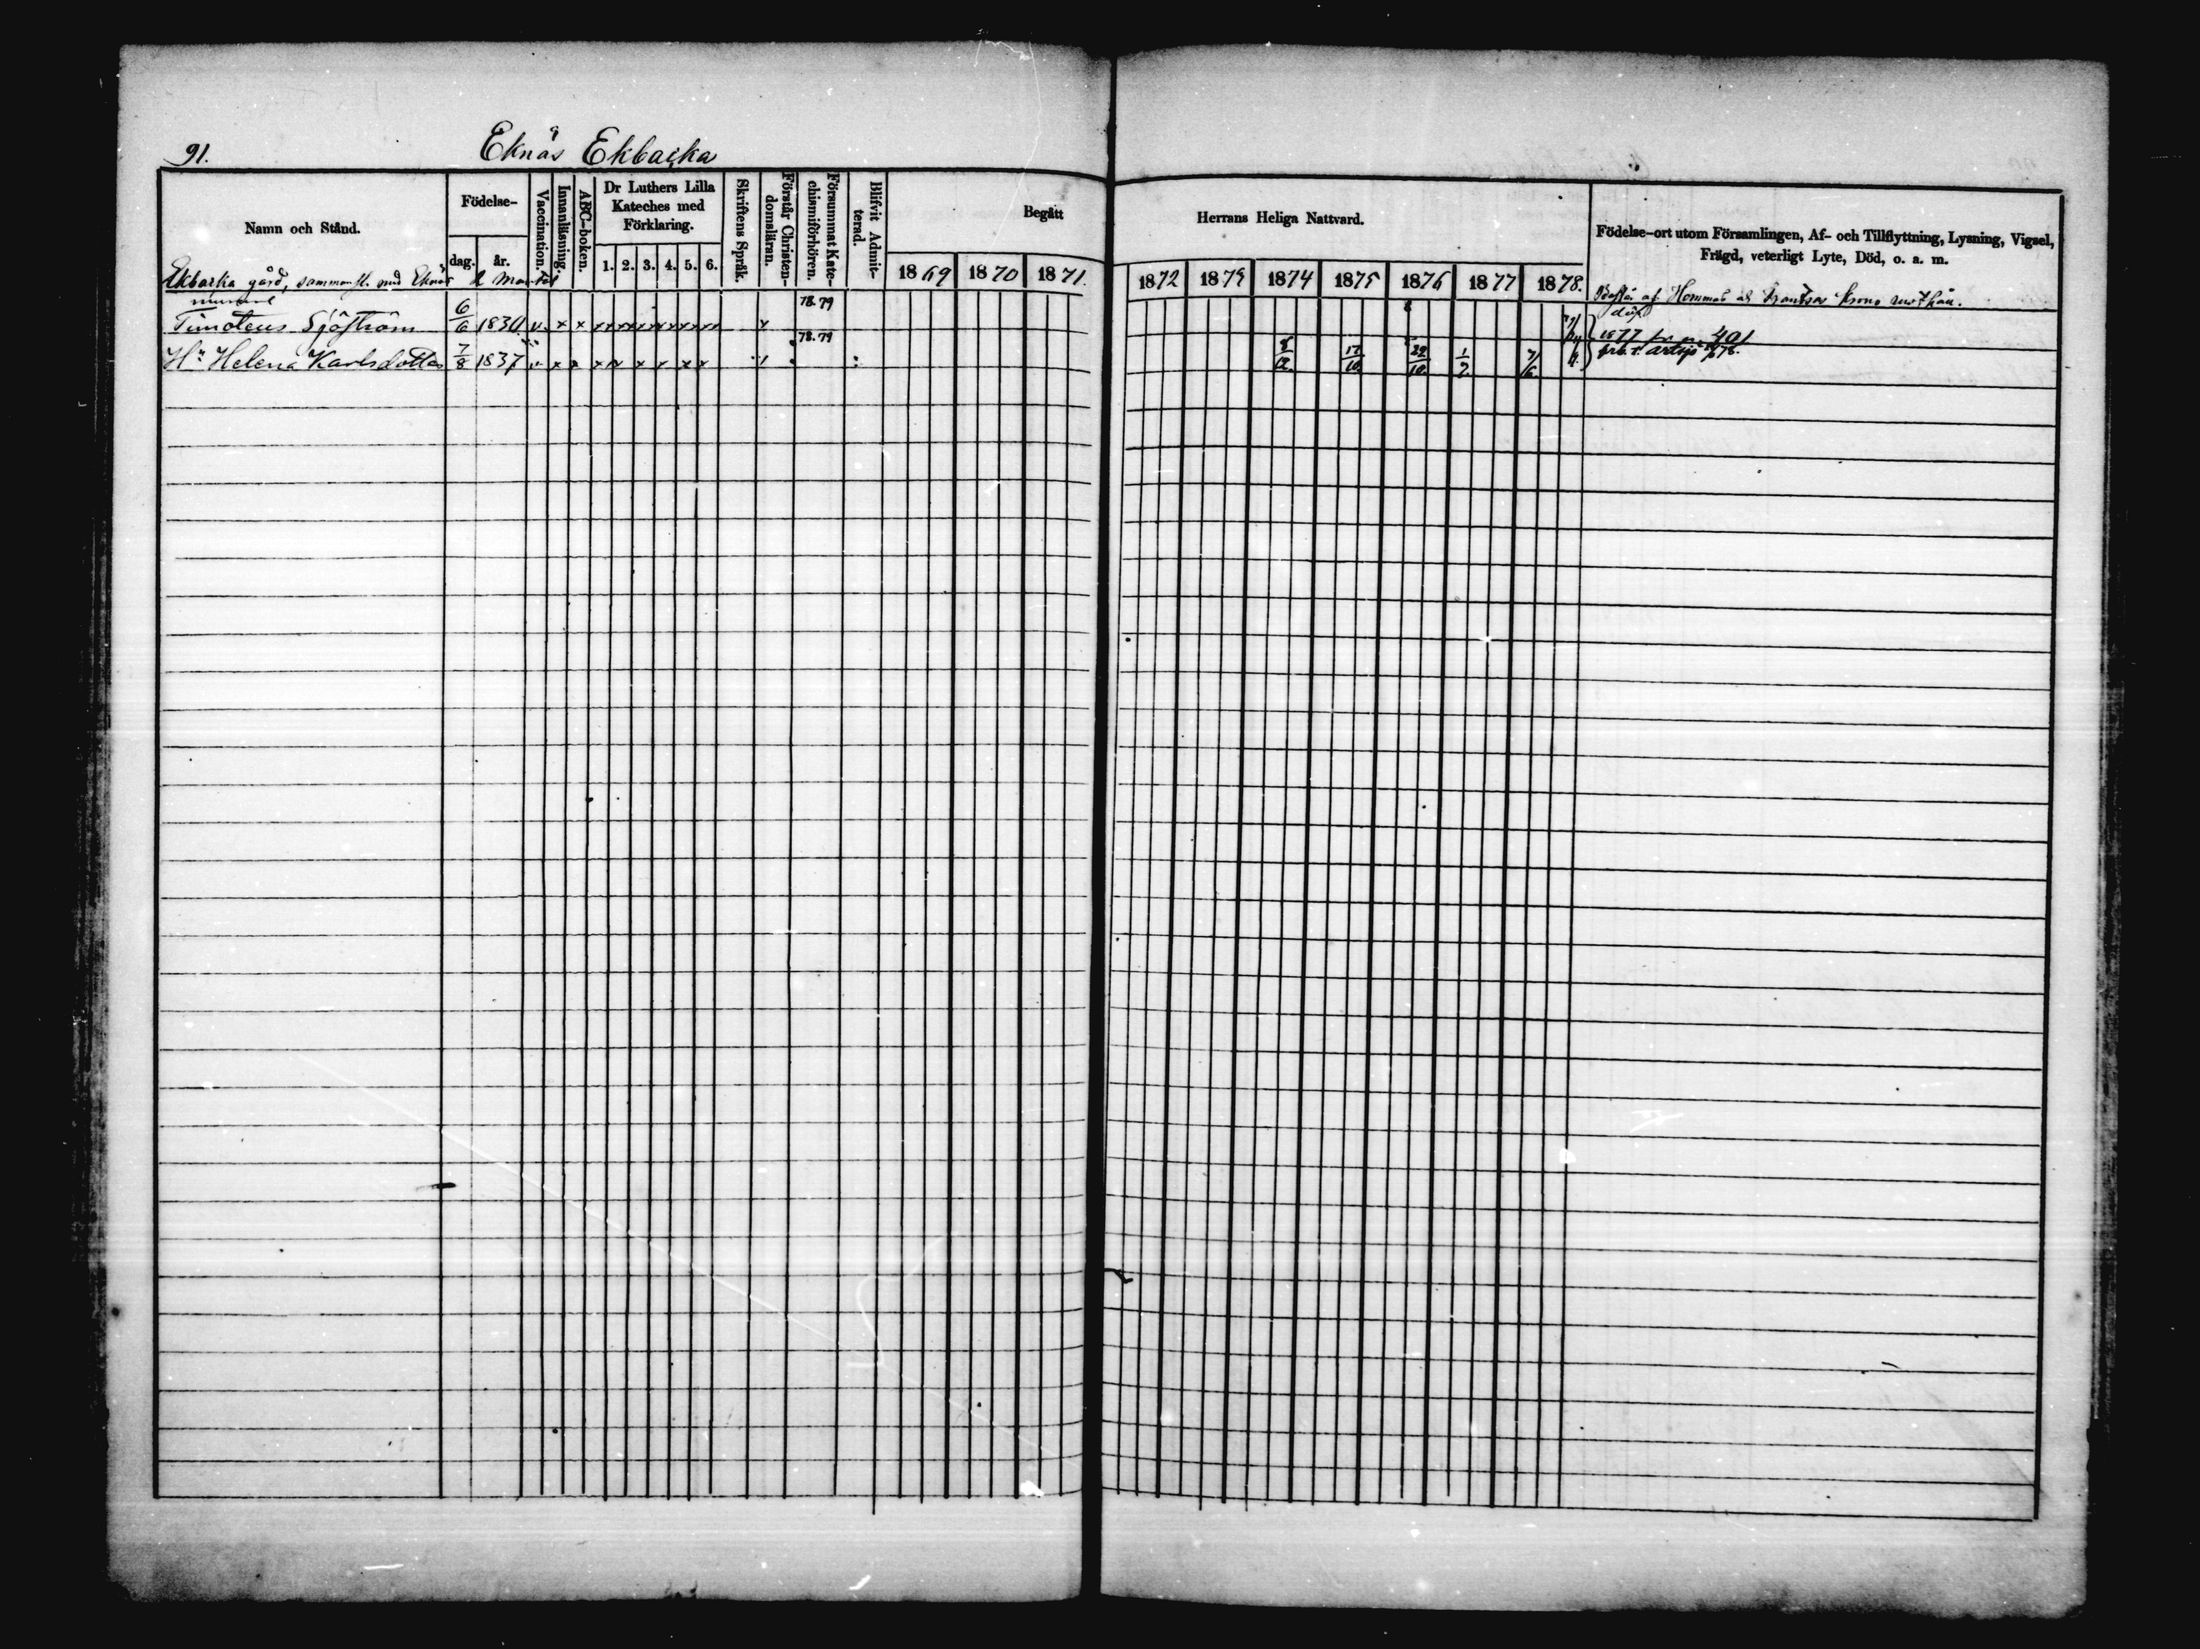 91.
Eknäs Ekbacka
Namn och Stånd.
Födelse-
dag.
år.
Vaccination.
Innanläsning.
ABC-boken.
Dr Luthers Lilla
Kateches med
Förklaring.
1. 2. 3. 4. 5. 6.
Skriftens Språk.
Förstår Christen-
domsläran.
Försummat Kate-
chismiförhören.
Blifvit Admit-
terad.
Begått
1869 1870 1871.
Herrans Heliga Nattvard.
1872 1873 1874 1875 1876 1877 1878.
Födelse-ort utom Församlingen, Af- och Tillflyttning, Lysning, Vigsel,
Frägd, veterligt Lyte, Död, o. a. m.
Ekbacka gård, sammansl. med Eknäs 2 Mantal
Består af Hommas
78.79
Timoteus Sjöström 6/6 1830 v. x x x x x x x x x x x x x
1877 fr. n. 401
78.79
Hu Helena Karlsdotter 7/8 1837 v. x x x x x x x x 8/12. 17/10. 29/10. 1/7. 7/6.